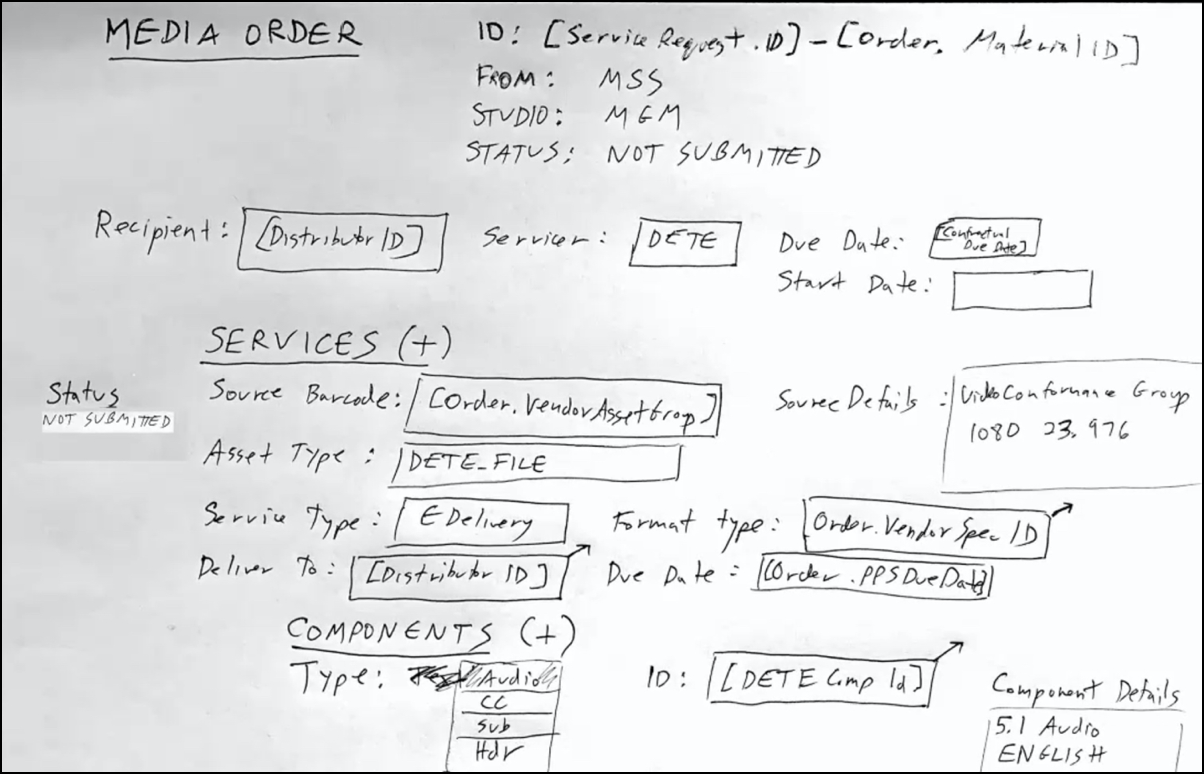 MEDIA ORDER
ID: [Service Request.ID]-[Order. Material ID]
FROM: MSS
STUDIO: MGM
STATUS: NOT SUBMITTED
Recipient: [Distributor ID]
Servicer: DETE
Due Date: [Contractual Due Date]
Start Date:
SERVICES (+)
Status
NOT SUBMITTED
Source Barcode: [Order.VendorAssetGroup]
Source Details: Video Conformance Group
1080 23.976
Asset Type: DETE_FILE
Service Type: EDelivery
Format type: Order.VendorSpec ID
Deliver To: [Distributor ID]
Due Date: [Order.PPSDueDate]
COMPONENTS (+)
Type: Audio
CC
Sub
Hdr
ID: [DETE Comp Id]
Component Details
5.1 Audio
ENGLISH